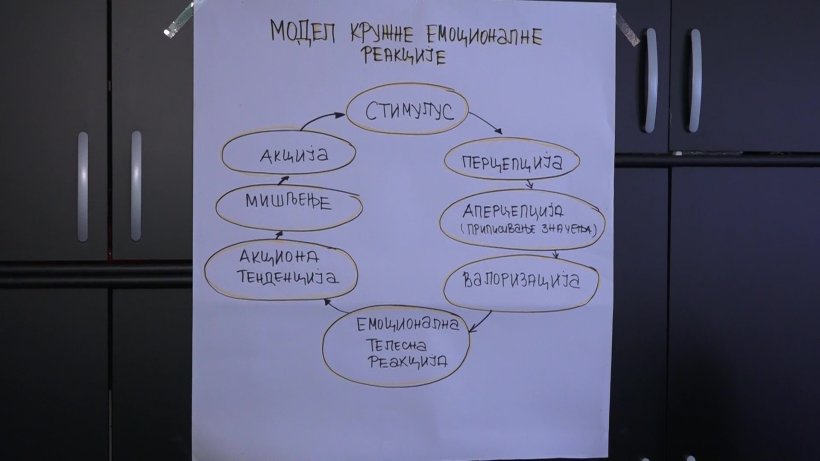 МОДЕЛ КРУЖНЕ ЕМОЦИОНАЛНЕ
РЕАКЦИЈЕ
СТИМУЛУС
ПЕРЦЕПЦИЈА
АПЕРЦЕПЦИЈА
(ПРИПИСИВАЊЕ ЗНАЧЕЊА)
ВАЛОРИЗАЦИЈА
ЕМОЦИОНАЛНА
ТЕЛЕСНА
РЕАКЦИЈА
АКЦИОНА
ТЕНДЕНЦИЈА
МИШЉЕЊЕ
АКЦИЈА